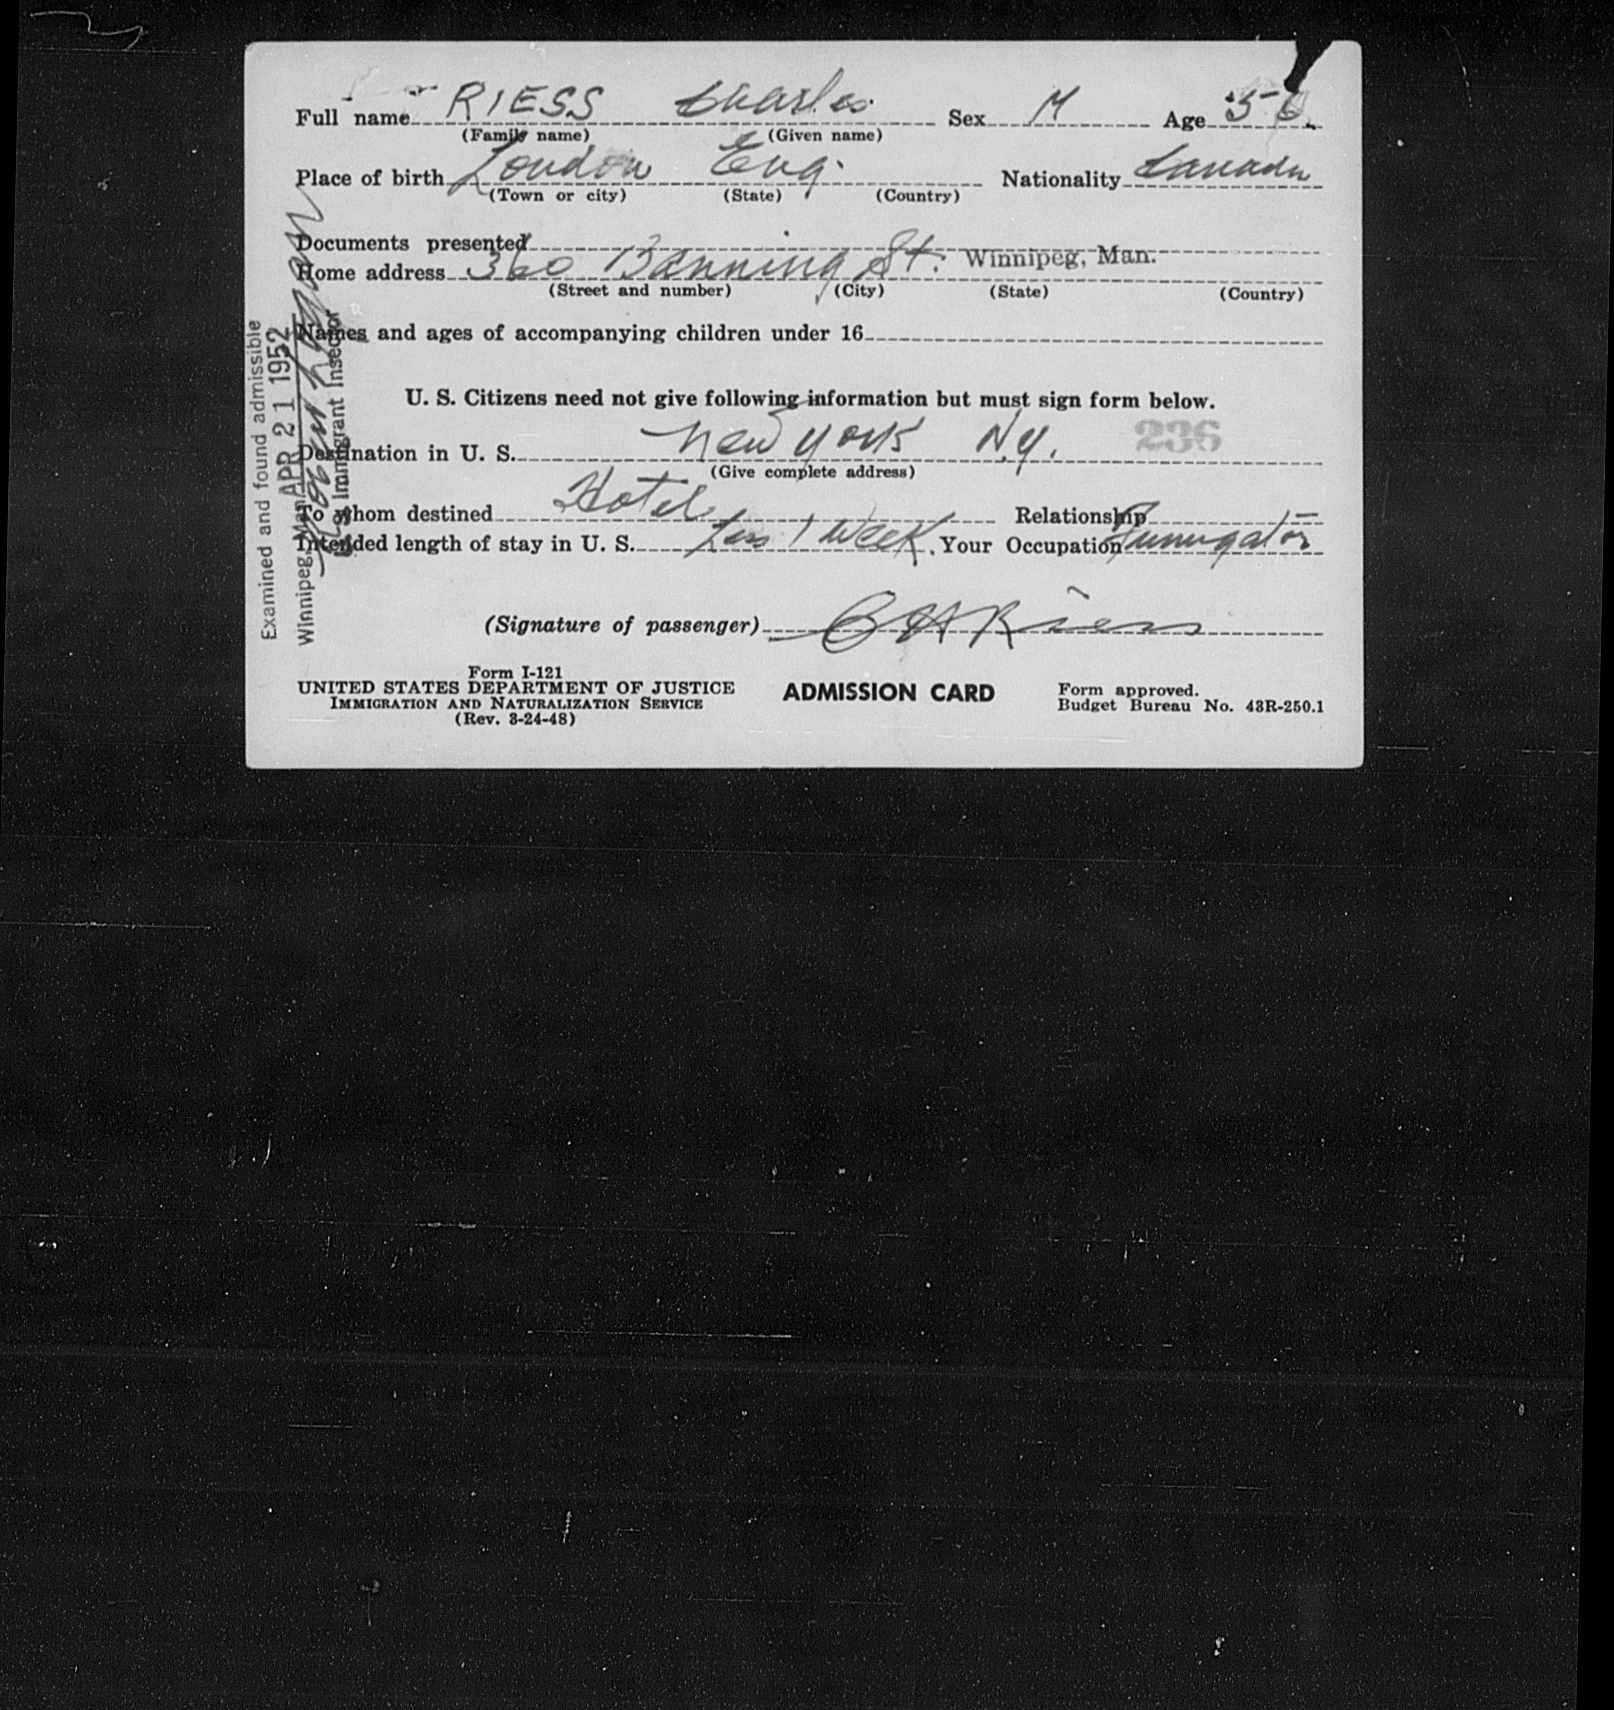 Full name RIESS Charles Sex M Age 56
(Family name) (Given name)
Place of birth London Eng. Nationality Canada
(Town or city) (State) (Country)
Documents presented
Home address 360 Banning St. Winnipeg, Man.
(Street and number) (City) (State) (Country)
Names and ages of accompanying children under 16
U. S. Citizens need not give following information but must sign form below.
Destination in U. S. New York N.Y. 236
(Give complete address)
To whom destined Hotel Relationship
Intended length of stay in U. S. Less 1 Week. Your Occupation Fumigator
(Signature of passenger) C H Riess
Form I-121
UNITED STATES DEPARTMENT OF JUSTICE
IMMIGRATION AND NATURALIZATION SERVICE
(Rev. 3-24-48)
ADMISSION CARD
Form approved.
Budget Bureau No. 43R-250.1
Examined and found admissible
Winnipeg, Man. APR 21 1952
Immigrant Insector